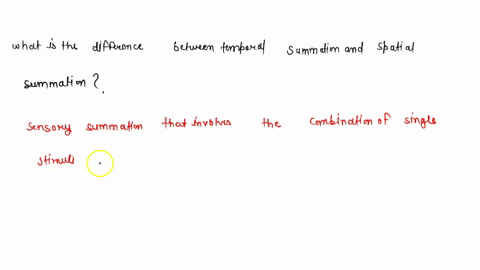 what is the difference between temporal summation and spatial
summation?.
sensory summation that involves the combination of single
stimuli